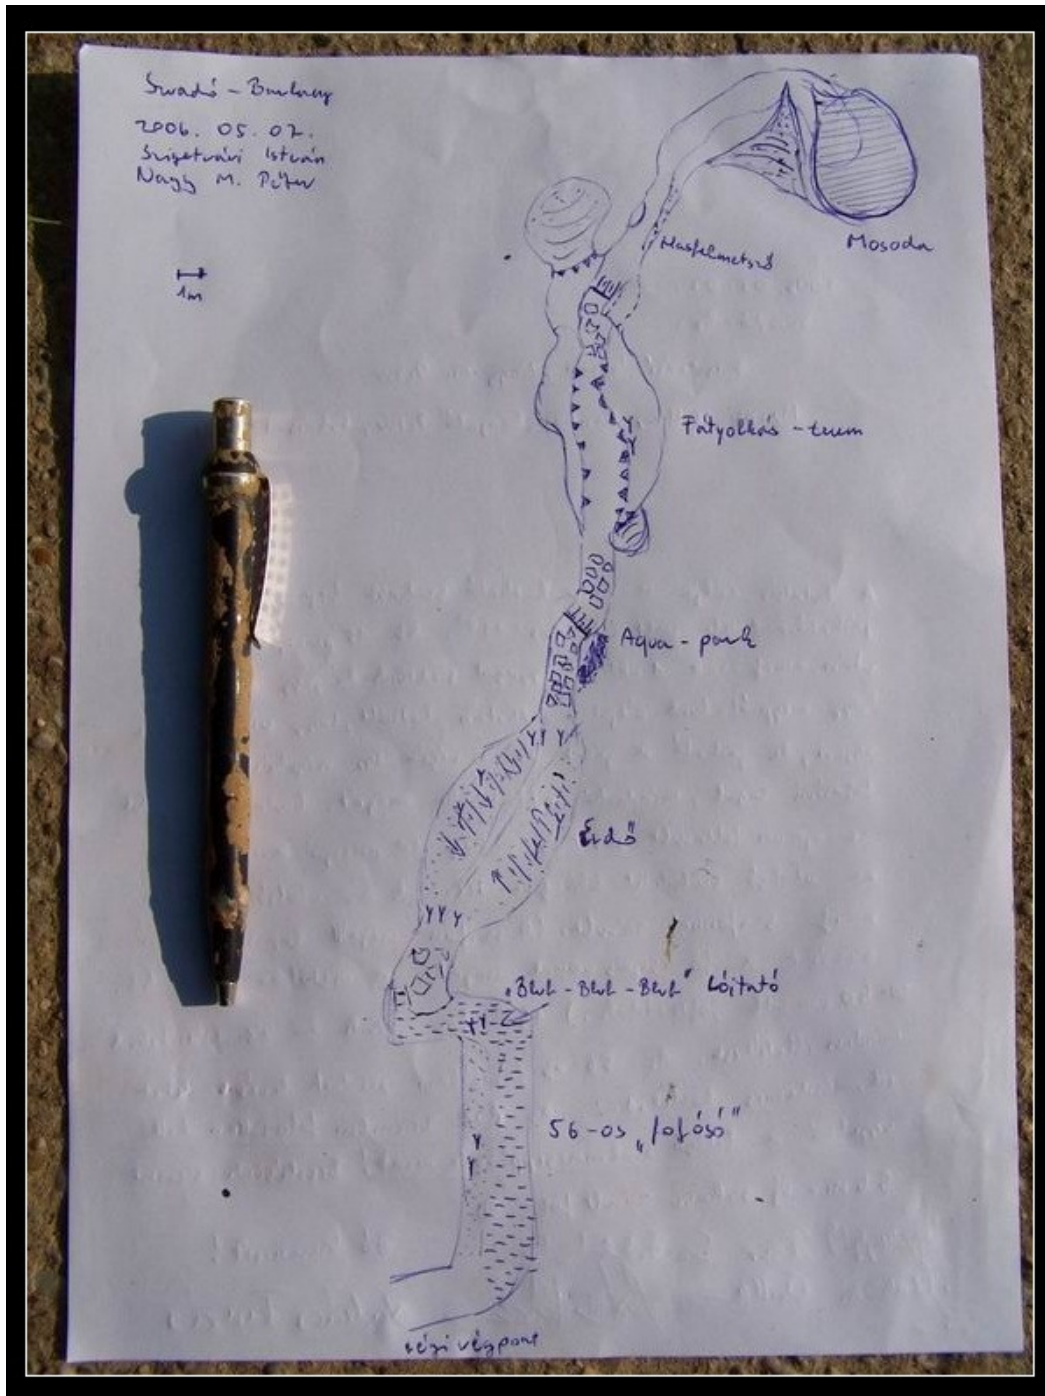 Szuadó - Barlang
2006. 05. 07.
Szigetvári István
Nagy M. Péter
1m
Mosoda
Hasfelmetsző
Fátyolkás - terem
Aqua - park
Erdő
Lóitató
56-os „fojósó"
régi végpont